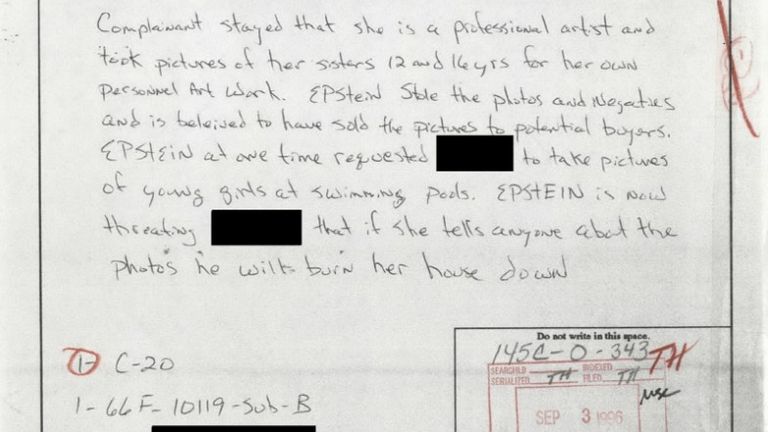 Complainant stayed that she is a professional artist and
took pictures of her sisters 12 and 16 yrs for her own
personnel Art work. EPStein Stole the photos and Negaties
and is beleived to have sold the pictures to potential buyers.
EPSTEIN at one time requested to take pictures
of young girls at swimming pools. EPSTEIN is now
threating that if she tells anyone abot the
photos he will burn her house down
1- C-20
1-66F-10119-Sub-B
Do not write in this space.
145C-0-343
TH
SEARCHED INDEXED
SERIALIZED TH FILED TH
SEP 3 1996